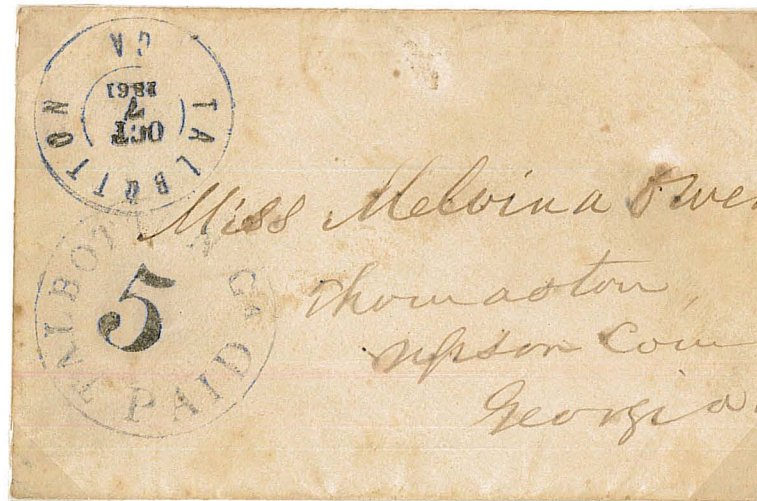 TALBOTTON
GA
OCT
7
1861
TALBOTTON GA
5
PAID
Miss Melvina Owen
Thomaston,
Upson Coun
Georgia